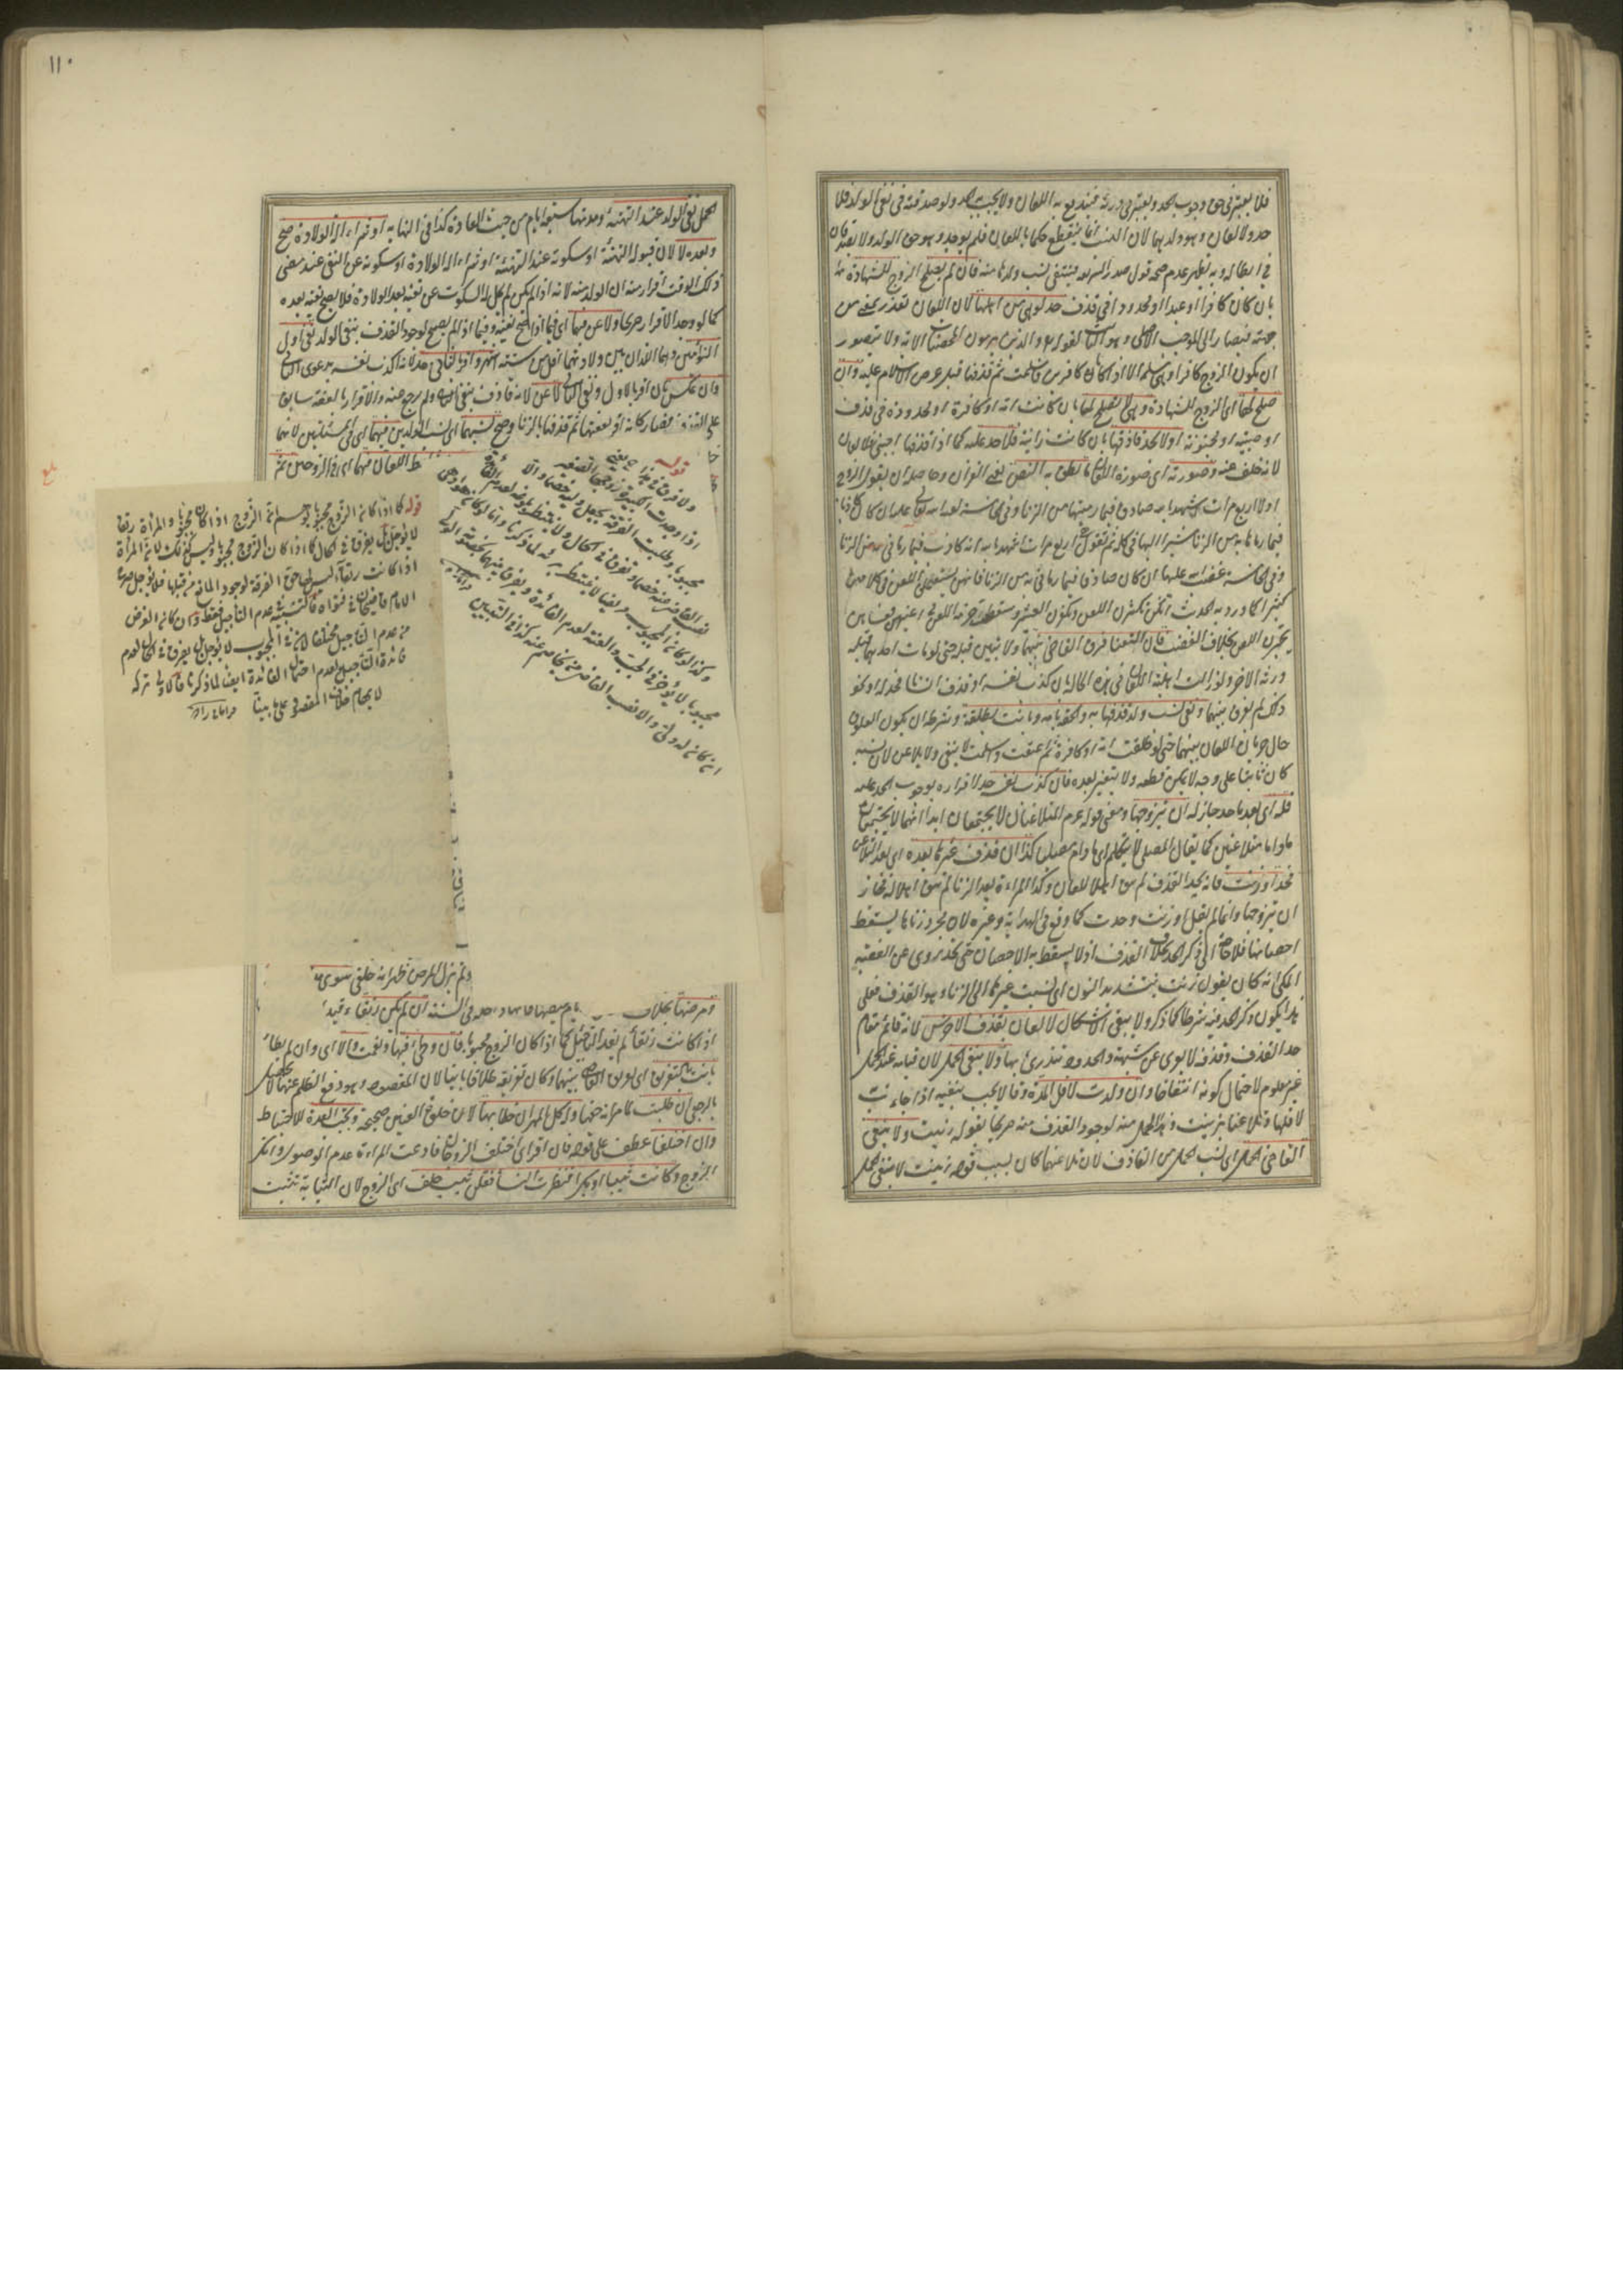 فلا يعتبر في حق وجوب الحد ويعتبر في درئه فيندفع به اللعان ولا يجب الحد ولو صدقته في نفي الولد فلا
حد ولا لعان وهو ولدهما لان النسب انما ينقطع حكما باللعان فلم يوجد وهو حق الولد ولا يصدقان
في ابطاله وبه يظهر عدم صحة قول صدر الشريعة ينتفي نسب ولدها منه فان لم يصلح الزوج للشهادة
بان كان كافرا او عبدا او محدودا في قذف حد لو هي من اهلها لان اللعان تعذر بمعنى من
جهته فيصار الى الموجب الاصلي وهو الثابت بقوله والذين يرمون المحصنات الاية ولا يتصور
ان يكون الزوج كافرا وهي مسلمة الا اذا كانا كافرين فاسلمت ثم قذفها قبل عرض الاسلام عليه وان
صلح لها اي الزوج للشهادة وهي لا تصلح لها بان كانت امة او كافرة او محدودة في قذف
او صبية او مجنونة او لا يحد قاذفها بان كانت زانية فلا حد عليه كما اذا قذفها اجنبي ولا لعان
لانه خلف عنه وصورته اي صورة اللعان ما نطق به النص يعني القران وحاصله ان يقول الزوج
اولا اربع مرات اشهد بالله صادق فيما رميتها من الزنا وفي الخامسة لعنة الله تعالى عليه ان كان كاذبا
فيما رماها به من الزنا مشيرا اليها في كله ثم تقول هي اربع مرات اشهد بالله انه كاذب فيما رماني به من الزنا
وفي الخامسة غضب الله عليها ان كان صادقا فيما رماني به من الزنا فانهن يستعملن اللعن في كلامهن
كثيرا كما ورد به الحديث انكن تكثرن اللعن وتكفرن العشير وسقطت حرمة اللعن في اعينهن فعساهن
يجترئن اللعن بخلاف الغضب فان التعنا فرق القاضي بينهما ولا تبين قبله حتى لو مات احدهما قبله
ورثه الاخر ولو زالت اهلية اللعان في هذه الحالة بان كذب نفسه او قذف انسانا فحد له او نحو
ذلك لم يفرق بينهما ونفى نسب ولد قذفها به والحقه بامه وبانت بطلقة وشرطه ان يكون العلوق
حال جريان اللعان بينهما حتى لو علقت امة او كافرة ثم اعتقت واسلمت لا ينفى ولا يلاعن لان نسبه
كان ثابتا على وجه لا يمكن قطعه ولا يتغير بعده فان كذب نفسه حد لاقراره بوجوب الحد عليه
فله اي بعد ما حد جاز له ان يتزوجها ومعنى قوله عم المتلاعنان لا يجتمعان ابدا انهما لا يجتمعان
ما داما متلاعنين كما يقال المصلي لا يتكلم اي ما دام مصليا كذا ان قذف غيرها بعده اي بعد التلاعن
فحد او زنت فانه بحد القذف لم يبق اهلا للعان وكذا المرأة بعد الزنا لم تبق اهلا له فجاز
ان يتزوجها وانما لم يقل او زنت وحدت كما وقع في الهداية وغيره لان مجرد زناها يسقط
احصانها فلا حاجة الى ذكر الحد بخلاف القذف اذ لا يسقط به الاحصان حتى يحد يروى عن الفقيه
المكي انه كان يقول زنت بتشديد النون اي نسبت غيرها الى الزنا وهو القذف فعلى
هذا يكون ذكر الحد فيه شرطا كما ذكر ولا يبقى الاشكال لا لعان بقذف الاخرس لانه قائم مقام
حد القذف وقذفه لا يعرى عن شبهة والحدود تندرئ بها ولا بنفي الحمل لان قيامه عند الحمل
غير معلوم لاحتمال كونه انتفاخا وان ولدت لاقل المدة وقالا يجب بنفيه اذا جاءت
لاقلها وتلاعنا بزنيت وهذا الحمل منه لوجود القذف منه صريحا بقوله زنيت ولا ينفي
القاضي الحمل اي نسب الحمل من القاذف لان تلاعنهما كان بسبب قوله زنيت لا بنفي الحمل
١١٠
الحمل نفي الولد عند التهنئة ومدتها سبعة ايام من حيث العادة كذا في النهاية او شراء الة الولادة صح
وبعده لا لان قبوله التهنئة او سكوته عند التهنئة او شراء الة الولادة او سكوته عن النفي عند مضي
ذلك الوقت اقرار منه ان الولد منه لانه اذا لم يكن لم يحل له السكوت عن نفيه بعد الولادة فلا يصح نفيه بعده
كما لو وجد الاقرار صريحا ولاعن فيهما اي فيما اذا صح نفيه وفيما اذا لم يصح لوجود القذف بنفي الولد نفى اول
التوأمين وهما اللذان بين ولادتهما اقل من ستة اشهر واقر بالثاني حد لانه اكذب نفسه بدعوى الثاني
وان عكس بان اقر بالاول ونفى الثاني لاعن لانه قاذف بنفي الثاني ولم يرجع عنه والاقرار بالعفة سابق
على القذف فصار كانه اقر بعفتها ثم قذفها بالزنا وصح نسبهما اي نسب الولدين فيهما اي في المسئلتين لانهما
اللعان منهما اي في الزوجين ثم
قوله
ولا فرق في هذا
اذا وجدت الكبيرة زوجها الصغير
مجبوبا وطلبت الفرقة يجعل وليه خصما والا
نصب القاضي عنه خصما وتفرق في الحال ولا ينتظر بلوغه لعدم الفائدة
وكذا لو كان المجبوب مريضا لا ينتظر برؤه لما ذكرنا واما لو كان
مجبوبا لا يؤخر في الجب والعنة لعدم الفائدة ويفرق بينهما بخصومة الولي
ان كان له ولي والا نصب القاضي من يخاصم عنه كذا في التبيين
قوله كما اذا كان الزوج مجبوبا اذا كان مجبوبا والمرأة رتقا
لا يؤجل بل يفرق في الحال كما اذا كان الزوج مجبوبا وليس كذلك لان المرأة
اذا كانت رتقاء ليس لها حق الفرقة لوجود المانع من قبلها فلا يؤجل
الامام قاضيخان في فتواه فالتشبيه في عدم التأجيل فقط وان كان الغرض
من عدم التأجيل مختلفا لان في المجبوب لا يؤجل بل يفرق في الحال لعدم
فائدة التأجيل لعدم احتمال الفائدة ايضا لما ذكرنا فالاولى تركه
لا يهام خلاف المقصود على ما بينا
ولم يزل المرض ظهر انه خلقي سوى
ومرضها بخلاف
اذا كانت رتقا لم يفد التأجيل كما اذا كان الزوج مجبوبا فان وطئ فبها ونعمت والا اي وان لم يطأ
بانت بتفريق اي تفريق القاضي بينهما وكان تفريقه طلاقا بائنا لان المقصود وهو دفع الظلم عنها لا يحصل
بالرجعي ان طلبت لانه حقها ولها كل المهر ان خلا بها لان خلوة العنين صحيحة وتجب العدة للاحتياط
وان اختلفا عطف على قوله فان اقر اي اختلف الزوجان فادعت المرأة عدم الوصول وانكر
الزوج وكانت ثيبا او بكرا فنظرت النساء فقلن ثيب حلف اي الزوج لان الثيابة تثبت